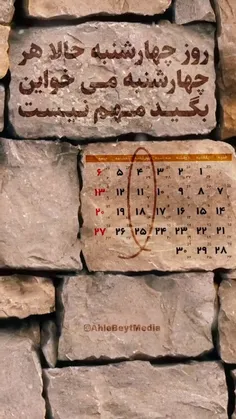 روز چهارشنبه حالا هر
چهارشنبه می خواین
بگید مهم نیست
۱ ۲ ۳ ۴ ۵ ۶
۷ ۸ ۹ ۱۰ ۱۱ ۱۲ ۱۳
۱۴ ۱۵ ۱۶ ۱۷ ۱۸ ۱۹ ۲۰
۲۱ ۲۲ ۲۳ ۲۴ ۲۵ ۲۶ ۲۷
۲۸ ۲۹ ۳۰
@AhleBeytMedia